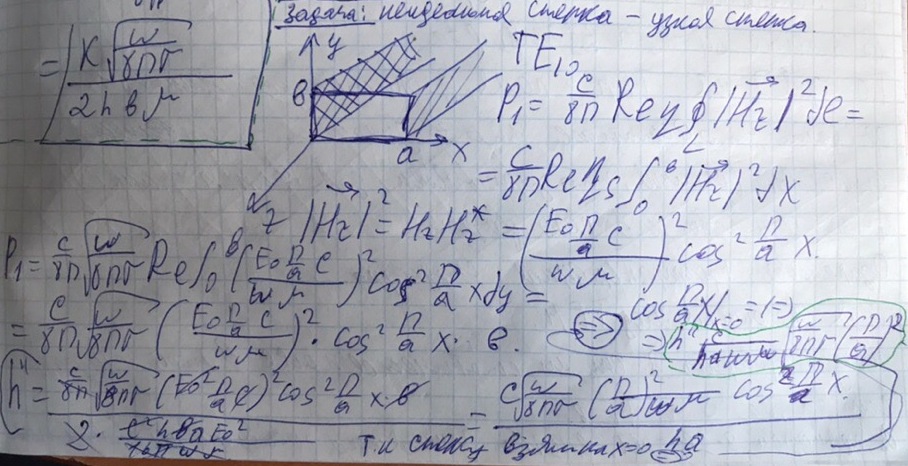 = K √(ω/8πσ) / 2hвμ
Задача: неидеальная стенка – узкая стенка.
y
в
a x
z
TE₁₀
P₁ = c/8π Re η ∮_L |H_τ|² dl =
= c/8π Re η_s ∫₀^в |H_z|² dx
|H_z|² = H_z H_z* = (E₀ π/a c / ωμ)² cos² π/a x.
P₁ = c/8π √(ω/8πσ) Re ∫₀^в (E₀ π/a c / ωμ)² cos² π/a x dy =
= c/8π √(ω/8πσ) (E₀ π/a c / ωμ)² · cos² π/a x · в.
⇒ cos π/a x |ₓ₌₀ = 1 ⇒
⇒ h" √(ω/8πσ) (π/a)²
h" = c/8π √(ω/8πσ) (E₀² π/a c)² cos² π/a x · в / 2 · = c √(ω/8πσ) (π/a)² ωμ cos² π/a x. / ha
т.к стенку взяли на x=0